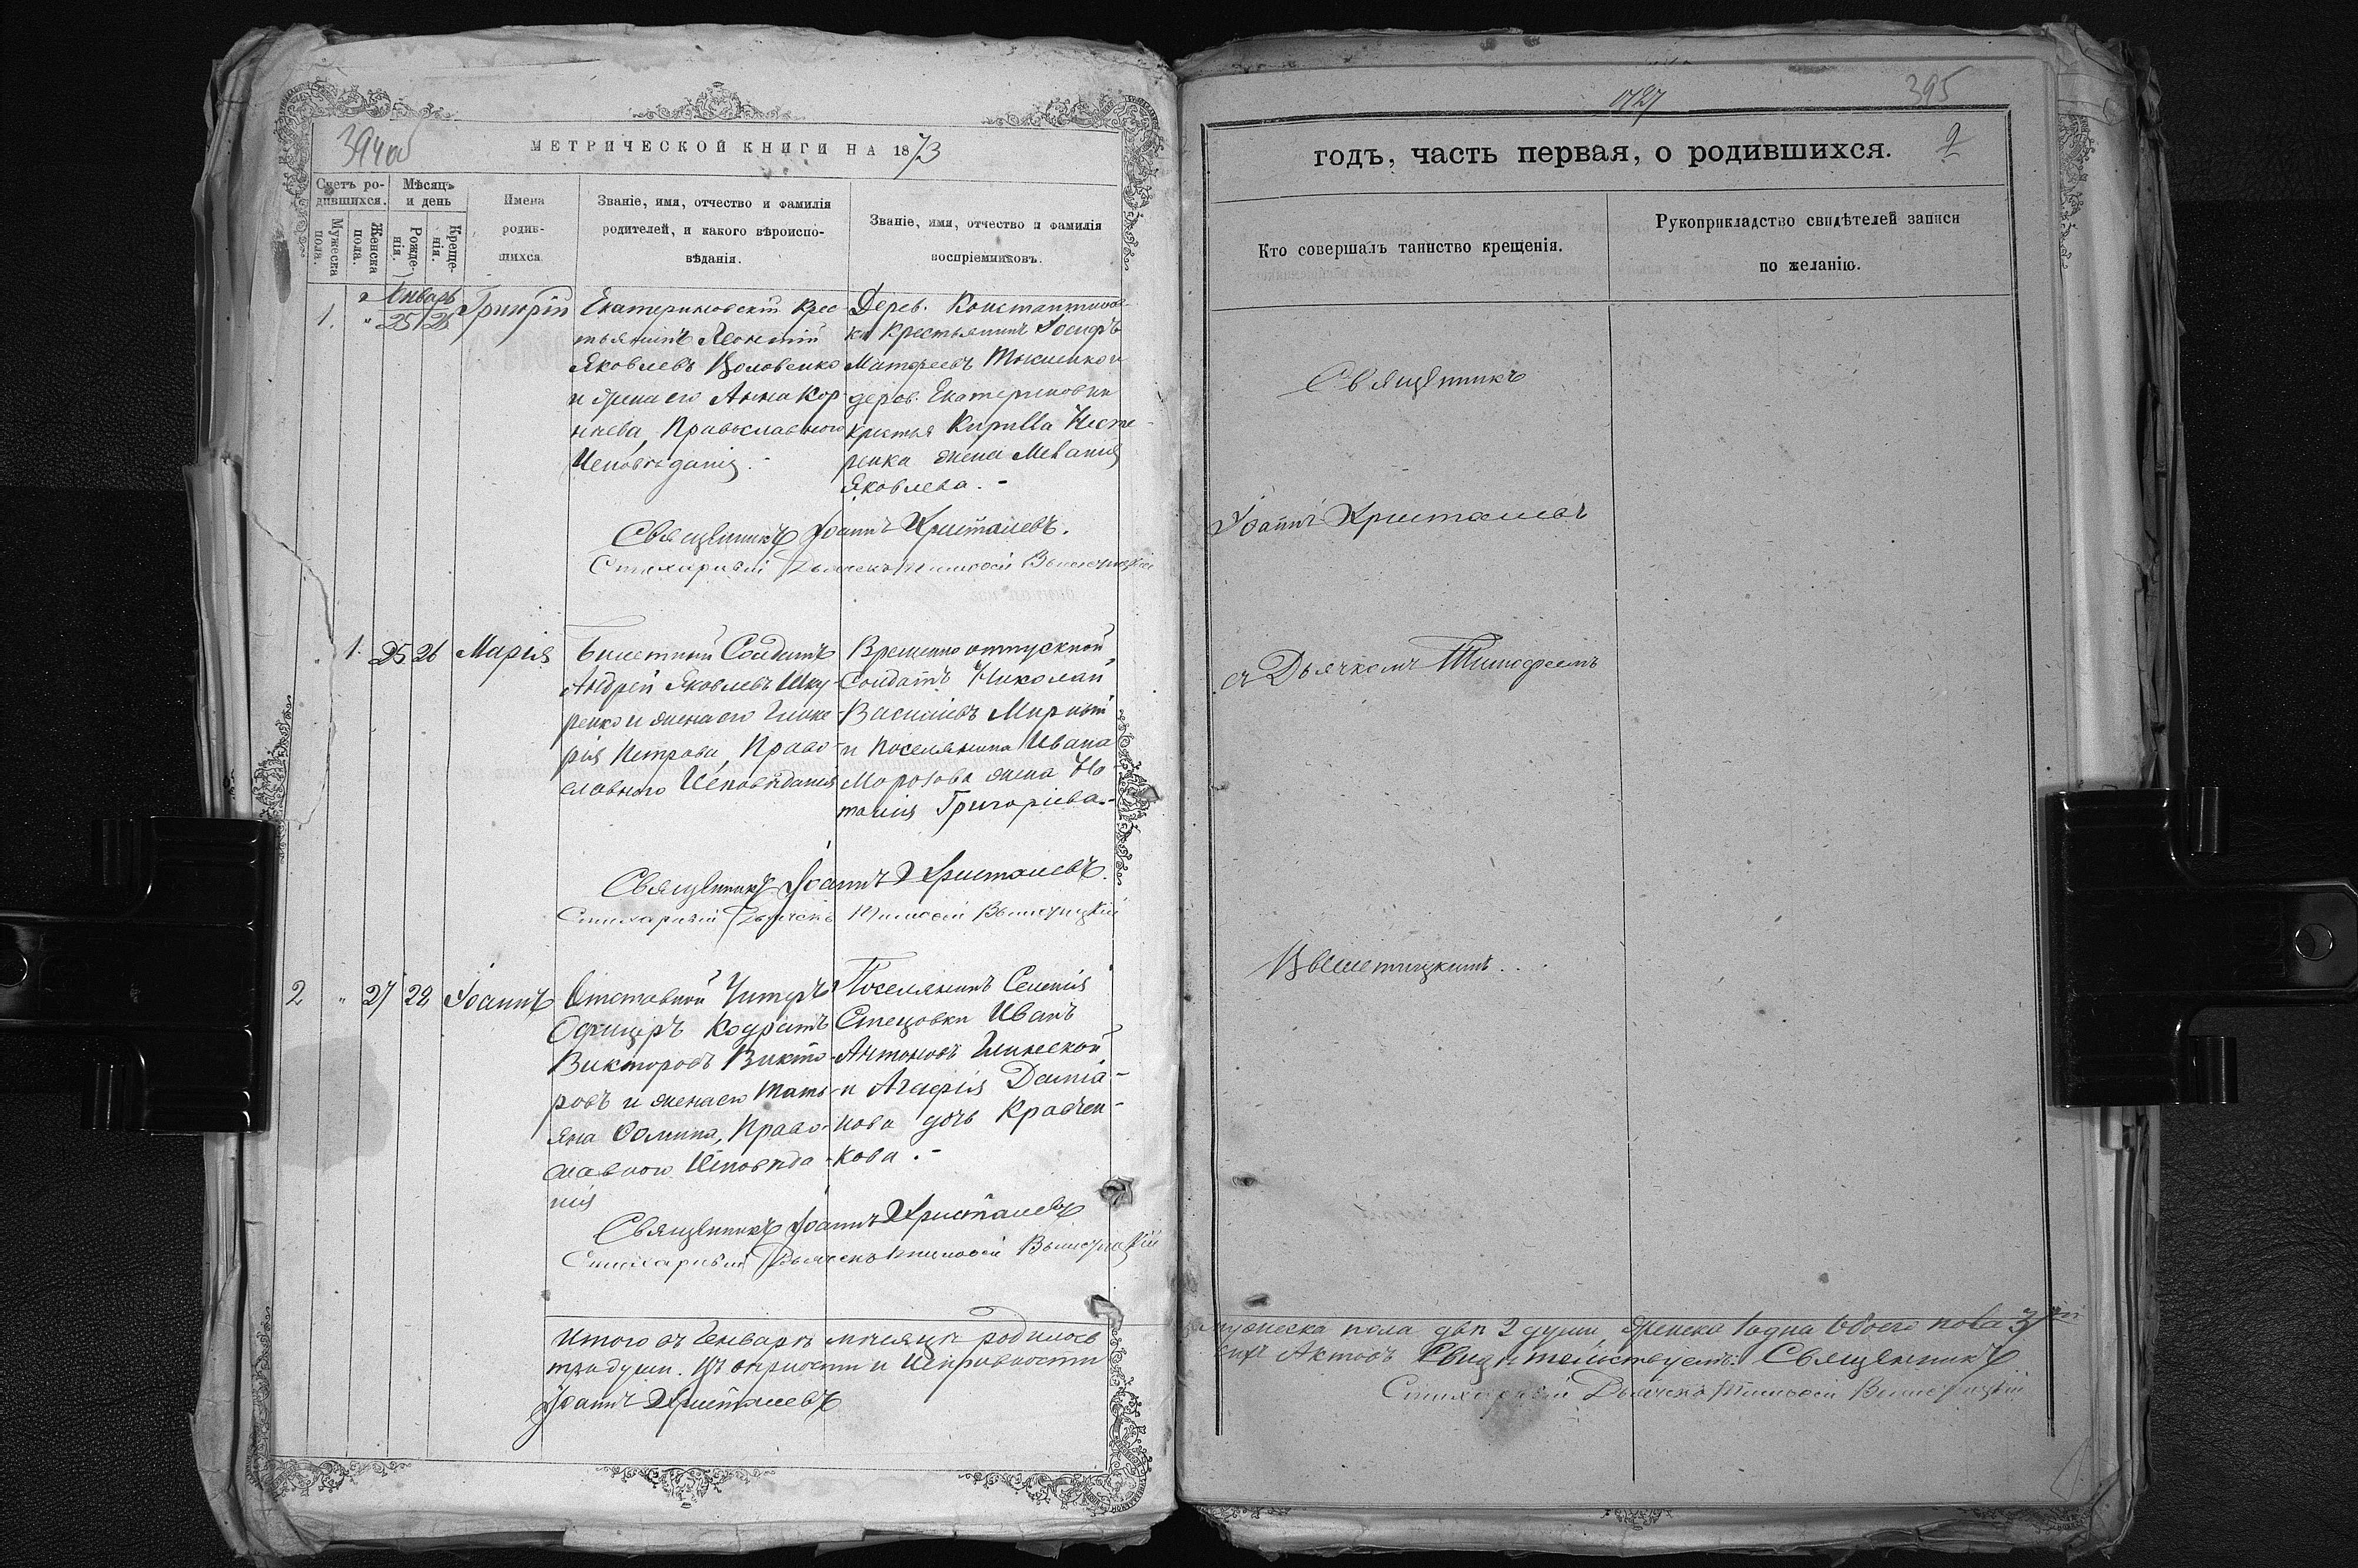 394об
МЕТРИЧЕСКОЙ КНИГИ НА 1873
Счетъ ро-
дившихся.
Мѣсяцъ
и день
Мужеска
пола.
Женска
пола.
Рожде-
нія.
Креще-
нія.
Имена
родив-
шихся
Званіе, имя, отчество и фамилія
родителей, и какого вѣроиспо-
вѣданія.
Званіе, имя, отчество и фамилія
воспріемниковъ.
Январь
1. " 25 26 Григорій
Екатериновскій Крес-
тьянинъ Леонтій
Яковлевъ Коловенко
и жена его Анна Кор-
нѣева, Православного
Исповѣданія.
Дерев. Константинов-
ки Крестьянинъ Іосифъ
Матфеевъ и
дерев. Екатериновки
крестья Кирилла Несте-
ренка жена Меланія
Яковлева. -
Священникъ Іоаннъ Христалевъ.
Стихарный Дьячекъ Тимофей Вышетицкій
1. 25 26 Марія
Билетный Солдатъ
Андрей Яковлевъ Шку-
ренко и жена его Глике-
рія Петрова, Право-
славного Исповѣданія
Временно отпускной
Солдатъ Николай
Василіевъ Мирный
и Поселянина Ивана
Морозова жена На-
талія Григоріева. -
Священникъ Іоаннъ Христалевъ.
Стихарный Дьячекъ Тимофей Вышетицкій
2 " 27 28 Іоаннъ
Отставной Унтеръ
Офицеръ Кодратъ
Викторовъ Викто-
ровъ и жена его Тать-
яна Фомина, Право-
славного Исповѣда-
нія
Поселянинъ Селенія
Стецовки Иванъ
Антоновъ Глинской
и Агафія Даміа-
нова дочь Кравчен-
кова. -
Священникъ Іоаннъ Христалевъ
Стихарный Дьячекъ Тимофей Вышетицкій
Итого въ Генварѣ мѣсяцѣ родилось
три души. Въ вѣрности и Исправности
Іоаннъ Христалевъ
395
2
годъ, часть первая, о родившихся.
Кто совершалъ таинство крещенія.
Рукоприкладство свидѣтелей записи
по желанію.
Священникъ
Іоаннъ Христалевъ
съ Дьячкомъ Тимофеемъ
Вышетицкимъ...
мужеска пола двѣ 2 души, женска 1 одна обоего пола 3
сихъ Актовъ Свидѣтельствуетъ: Священникъ
Стихарный Дьячекъ Тимофей Вышетицкій